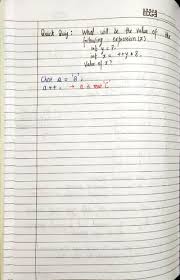 Quick Quiz : What will be the value of the
following expression (x).
int y = 7.
int x = ++y + 8.
Value of x?
Char a = 'B',
a++, → a is now 'C'